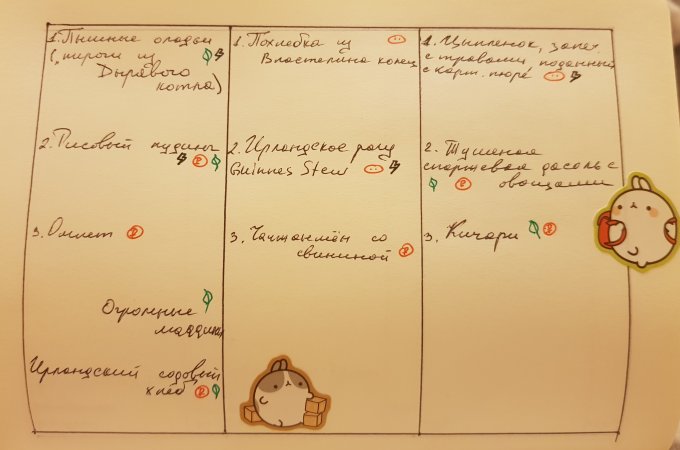 1. Пышные оладьи
(, пироги из
Дырявого
котла)
2. Рисовый пудинг
3. Омлет
Огромные
маффины
Ирландский содовый
хлеб
1. Похлебка из
Властелина конец
2. Ирландское рагу
Guinnes Stew
3. Чачжанмён со
свининой
1. Цыпленок, запеч.
с травами, поданный
с карт. пюре
2. Тушеная
спаржевая фасоль с
овощами
3. Кичари